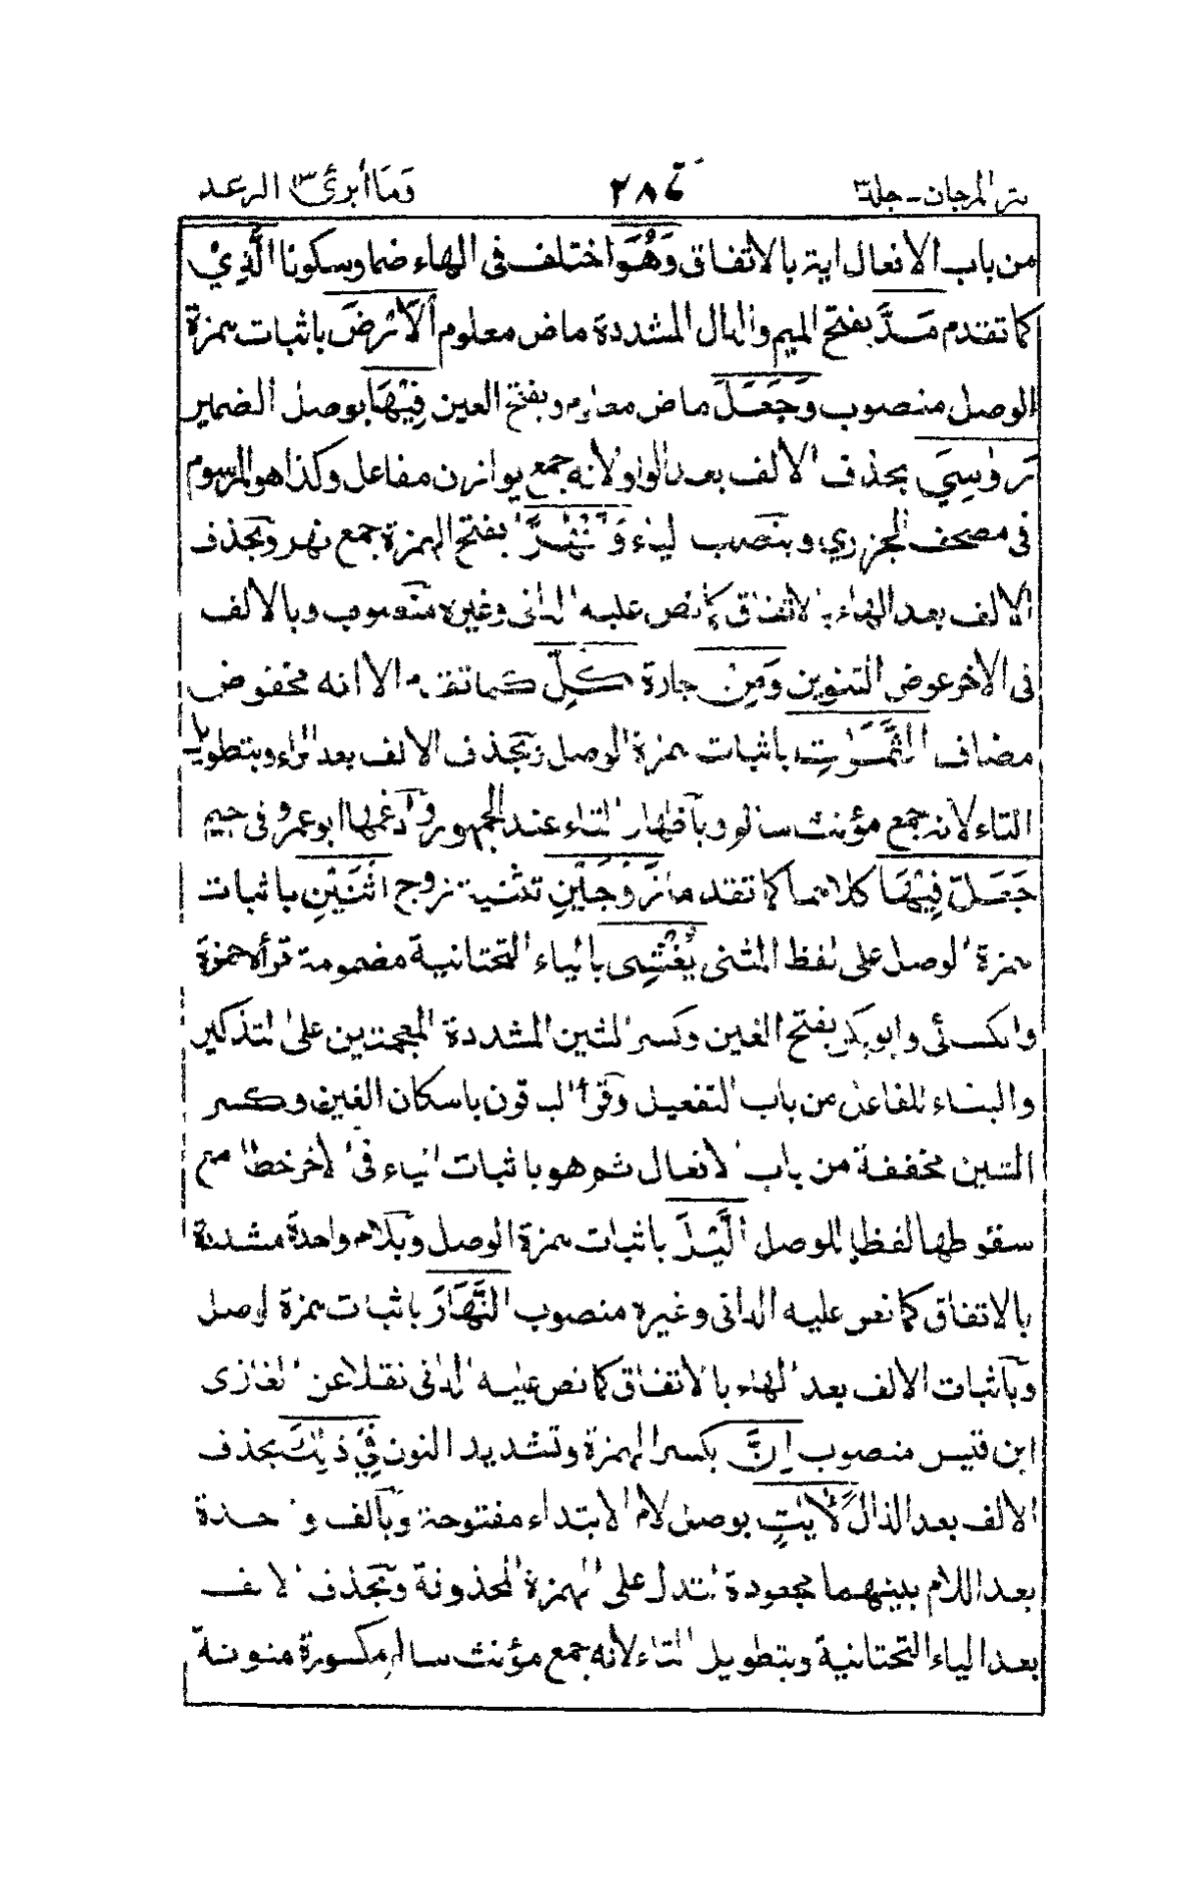 نثر المرجان - جلد ٣ ٢٨٤ وَمَا أبرئ ١٣ الرعد
من باب الافعال اية بالاتفاق وَهُوَ اختلف فى الهاء ضما وسكونا الَّذِيْ
كما تقدم مَدَّ بفتح الميم والدال المشددة ماض معلوم الْاَرْضَ باثبات همزة
الوصل منصوب وَجَعَلَ ماض معلوم وبفتح العين فِيْهَا بوصل الضمير
رَوٰسِيَ بحذف الالف بعد الواو لانه جمع يوازن مفاعل وكذا هو المرسوم
فى مصحف الجزري وبنصب الياء وَاَنْهٰرًا بفتح الهمزة جمع نهر وبحذف
الالف بعد الهاء بالاتفاق كما نص عليه الدانى وغيره منصوب وبالالف
فى الاخر عوض التنوين وَمِنْ جارة كُلِّ كما تقدم الا انه مخفوض
مضاف الثَّمَرٰتِ باثبات همزة الوصل وبحذف الالف بعد الراء وبتطويل
التاء لانه جمع مؤنث سالم وبأظهار التاء عند الجمهور وأدغمها ابو عمرو فى جيم
جَعَلَ فِيْهَا كلاهما كما تقدما زَوْجَيْنِ تثنية زوج اثْنَيْنِ باثبات
همزة الوصل على لفظ المثنى يُغْشِى بالياء التحتانية مضمومة قرأه حمزة
والكسائى وابوبكر بفتح الغين وكسر الشين المشددة المعجمتين على التذكير
والبناء للفاعل من باب التفعيل وقرأ الباقون باسكان الغين وكسر
الشين مخففة من باب الافعال ثم هو باثبات الياء فى الاخر خطا مع
سقوطها لفظا للوصل الَّيْلَ باثبات همزة الوصل وبلام واحدة مشددة
بالاتفاق كما نص عليه الدانى وغيره منصوب النَّهَارَ باثبات همزة الوصل
وبأثبات الالف بعد الهاء بالاتفاق كما نص عليه الدانى نقلا عن الغازى
ابن قيس منصوب اِنَّ بكسر الهمزة وتشديد النون فِيْ ذٰلِكَ بحذف
الالف بعد الذال لَاٰيٰتٍ بوصل لام الابتداء مفتوحة وبألف واحدة
بعد اللام بينهما مجعودة لتدل على الهمزة المحذوفة وبحذف الالف
بعد الياء التحتانية وبتطويل التاء لانه جمع مؤنث سالم مكسورة منونة